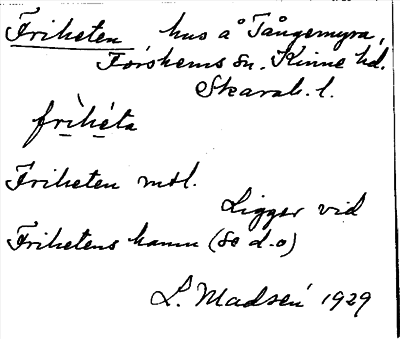 Friheten hus å Tångemyra,
Forshems sn. Kinne hd.
Skarab. l.
frìhéta
Friheten mtl.
Ligger vid
Frihetens hamn (se d.o)
L. Madsén 1929